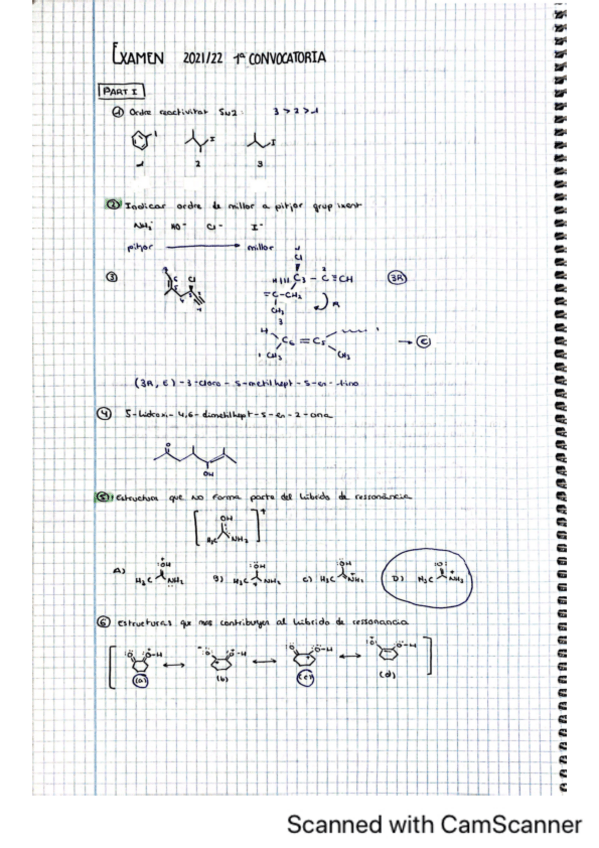 EXAMEN 2021/22 1ª CONVOCATORIA
PART I
① Ordre reactivitat SN2: 3 > 2 > 1
1 2 3
② Indicar ordre de millor a pitjor grup ixent
NH₂⁻ HO⁻ Cl⁻ I⁻
pitjor → millor
③
C≡CH
3R
=C-CH₂
R
CH₃
3
H C₆ = C₅
CH₃ CH₃
→ E
(3R, E) - 3-cloro - 5-metilhept - 5-en - 1-ino
④ 5-hidroxi-4,6-dimetilhept-5-en-2-ona
OH
⑤ Estructura que NO forma parte del híbrido de resonància
OH
H₃C NH₂
A) B) C) D)
H₃C NH₂ H₃C NH₂ H₃C NH₂ H₃C NH₂
⑥ estructuras que mes contribuyen al híbrido de resonancia
(a) (b) (c) (d)
Scanned with CamScanner